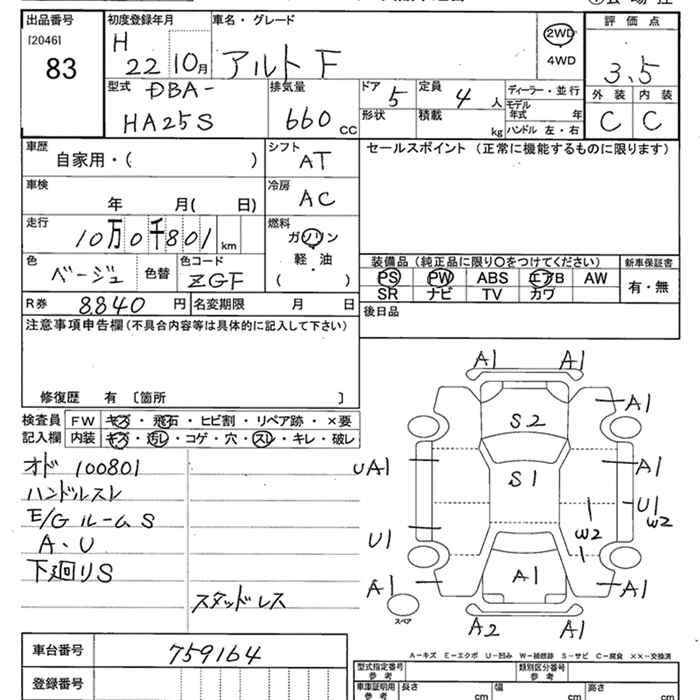 出品番号
[2046]
83
初度登録年月
H 22 10月
車名・グレード
アルト F
2WD
4WD
評価点
3.5
外装 内装
C C
型式
DBA-
HA25S
排気量
660 cc
ドア 5
形状
定員 4 人
積載 kg
ディーラー・並行
モデル年式 年
ハンドル 左・右
車歴
自家用・( )
シフト
AT
セールスポイント (正常に機能するものに限ります)
車検
年 月( 日)
冷房
AC
走行
10万0千801 km
燃料
ガソリン
軽・油
( )
色
ベージュ
色替
色コード
ZGF
装備品 (純正品に限り○をつけてください)
PS PW ABS エアB AW
SR ナビ TV カワ
新車保証書
有・無
R券 8840 円
名変期限 月 日
後日品
注意事項申告欄 (不具合内容等は具体的に記入して下さい)
修復歴 有 〔箇所 〕
検査員 FW キズ・飛石・ヒビ割・リペア跡・×要
記入欄 内装 キズ・汚レ・コゲ・穴・スレ・キレ・破レ
オド 100801
ハンドルスレ
E/G ルーム S
A・U
下廻り S
スタッドレス
A1 A1
A1
S2
UA1
S1
A1
U1
W2
W2
U1
A1
A1
A1
スペア
A2 A1
A-キズ E-エクボ U-凹み W-補修跡 S-サビ C-腐食 XX-交換済
車台番号 759164
登録番号
型式指定番号
参考
類別区分番号
参考
車庫証明用
参考
長さ cm
幅 cm
高さ cm